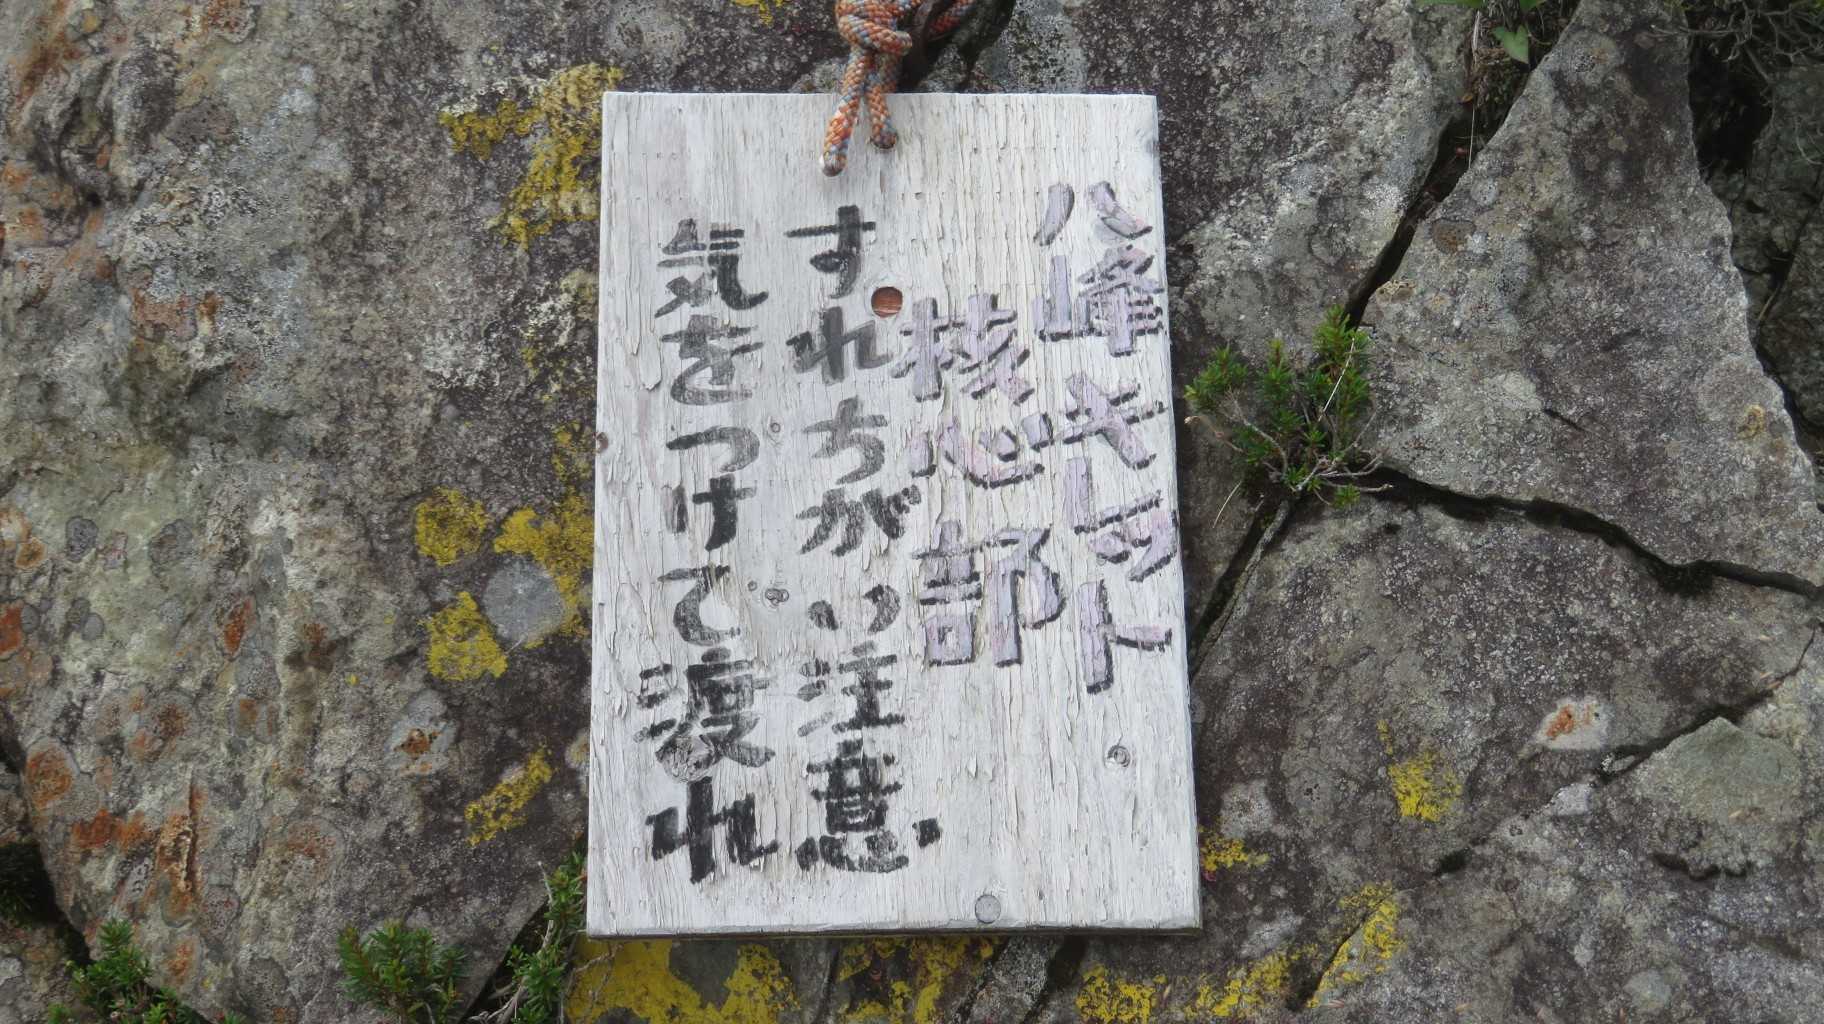 八峰キレット
核心部
すれちがい注意
気をつけて渡れ